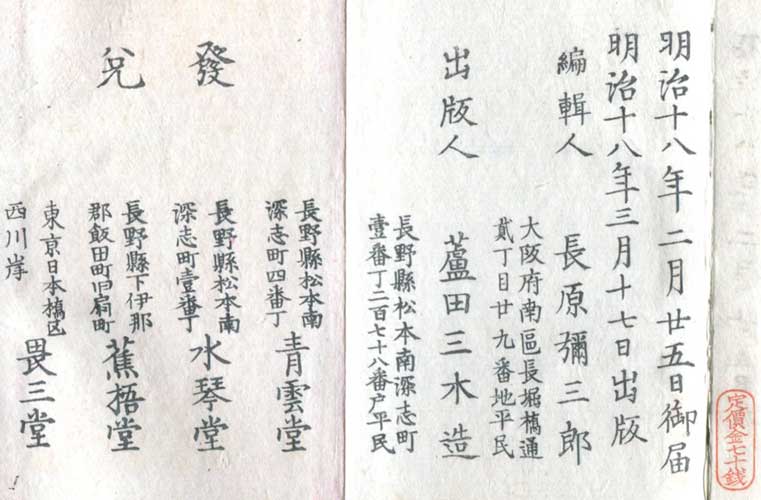 明治十八年二月廿五日御届
明治十八年三月十七日出版
編輯人
大阪府南區長堀橋通
貳丁目廿九番地平民
長原彌三郎
出版人
長野縣松本南深志町
壹番丁二百七十八番戸平民
蘆田三木造
定價金七十銭
發兌
長野縣松本南
深志町四番丁
青雲堂
長野縣松本南
深志町壹番丁
水琴堂
長野縣下伊那
郡飯田町旧扇町
蕉梧堂
東京日本橋区
西川岸
畏三堂